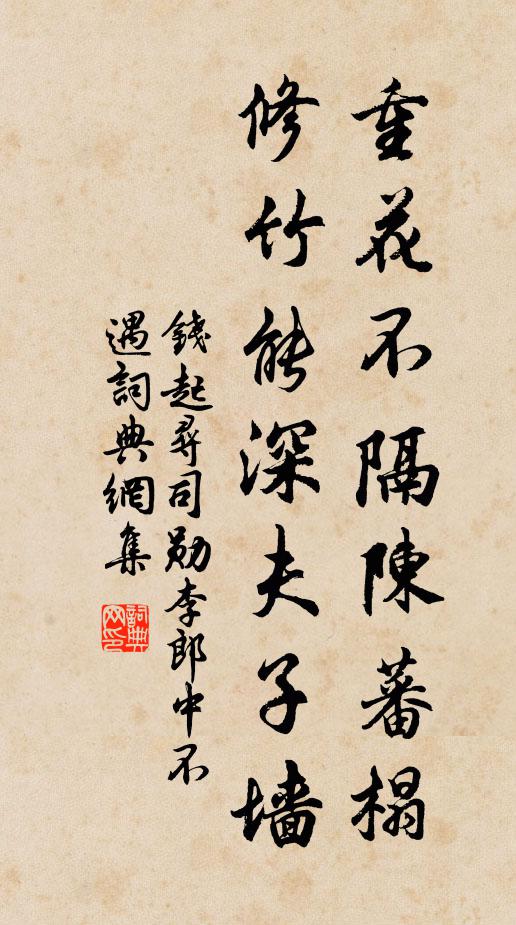 重花不隔陳蕃榻
修竹能深夫子墙
錢起尋司勛李郎中不
遇詞典網集
詞典
网印